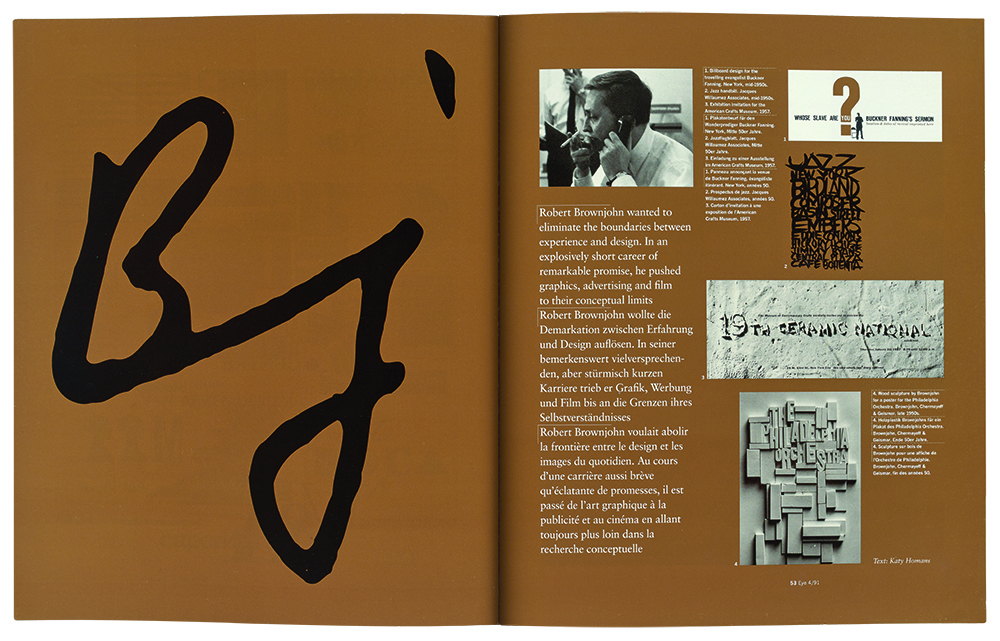 Bj
1. Billboard design for the
travelling evangelist Buckner
Fanning. New York, mid-1950s.
2. Jazz handbill. Jacques
Willaumez Associates, mid-1950s.
3. Exhibition invitation for the
American Crafts Museum, 1957.
1. Plakatentwurf für den
Wanderprediger Buckner Fanning.
New York, Mitte 50er Jahre.
2. Jazzflugblatt. Jacques
Willaumez Associates, Mitte
50er Jahre.
3. Einladung zu einer Ausstellung
im American Crafts Museum, 1957.
1. Panneau annonçant la venue
de Buckner Fanning, évangéliste
itinérant. New York, années 50.
2. Prospectus de jazz. Jacques
Willaumez Associates, années 50.
3. Carton d'invitation à une
exposition de l'American
Crafts Museum, 1957.
WHOSE SLAVE ARE YOU ? BUCKNER FANNING'S SERMON
1
JAZZ
NEW YORK
BIRDLAND
COMPOSER
BASIN STREET
EMBERS
HICKORY HOUSE
CENTRAL PLAZA
CAFE BOHEMIA
2
Robert Brownjohn wanted to
eliminate the boundaries between
experience and design. In an
explosively short career of
remarkable promise, he pushed
graphics, advertising and film
to their conceptual limits
Robert Brownjohn wollte die
Demarkation zwischen Erfahrung
und Design auflösen. In seiner
bemerkenswert vielversprechen-
den, aber stürmisch kurzen
Karriere trieb er Grafik, Werbung
und Film bis an die Grenzen ihres
Selbstverständnisses
Robert Brownjohn voulait abolir
la frontière entre le design et les
images du quotidien. Au cours
d'une carrière aussi brève
qu'éclatante de promesses, il est
passé de l'art graphique à la
publicité et au cinéma en allant
toujours plus loin dans la
recherche conceptuelle
19TH CERAMIC NATIONAL
3
4. Wood sculpture by Brownjohn
for a poster for the Philadelphia
Orchestra. Brownjohn, Chermayeff
& Geismar, late 1950s.
4. Holzplastik Brownjohns für ein
Plakat des Philadelphia Orchestra.
Brownjohn, Chermayeff &
Geismar, Ende 50er Jahre.
4. Sculpture sur bois de
Brownjohn pour une affiche de
l'Orchestre de Philadelphie.
Brownjohn, Chermayeff &
Geismar, fin des années 50.
THE
PHILADELPHIA
ORCHESTRA
4
Text: Katy Homans
53 Eye 4/91